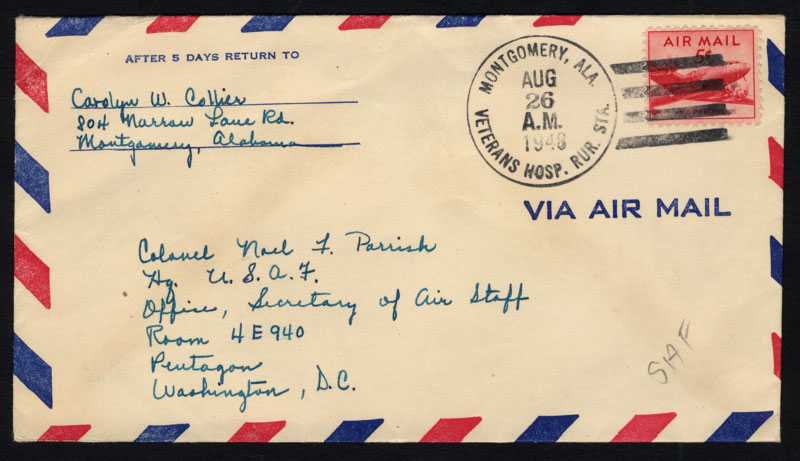 AFTER 5 DAYS RETURN TO
Carolyn W. Collier
804 Narrow Lane Rd.
Montgomery, Alabama
MONTGOMERY, ALA.
AUG
26
A.M.
1948
VETERANS HOSP. RUR. STA.
AIR MAIL
5¢
VIA AIR MAIL
Colonel Noel F. Parrish
Hq. U. S. A. F.
Office, Secretary of Air Staff
Room 4E940
Pentagon
Washington, D.C.
SAF